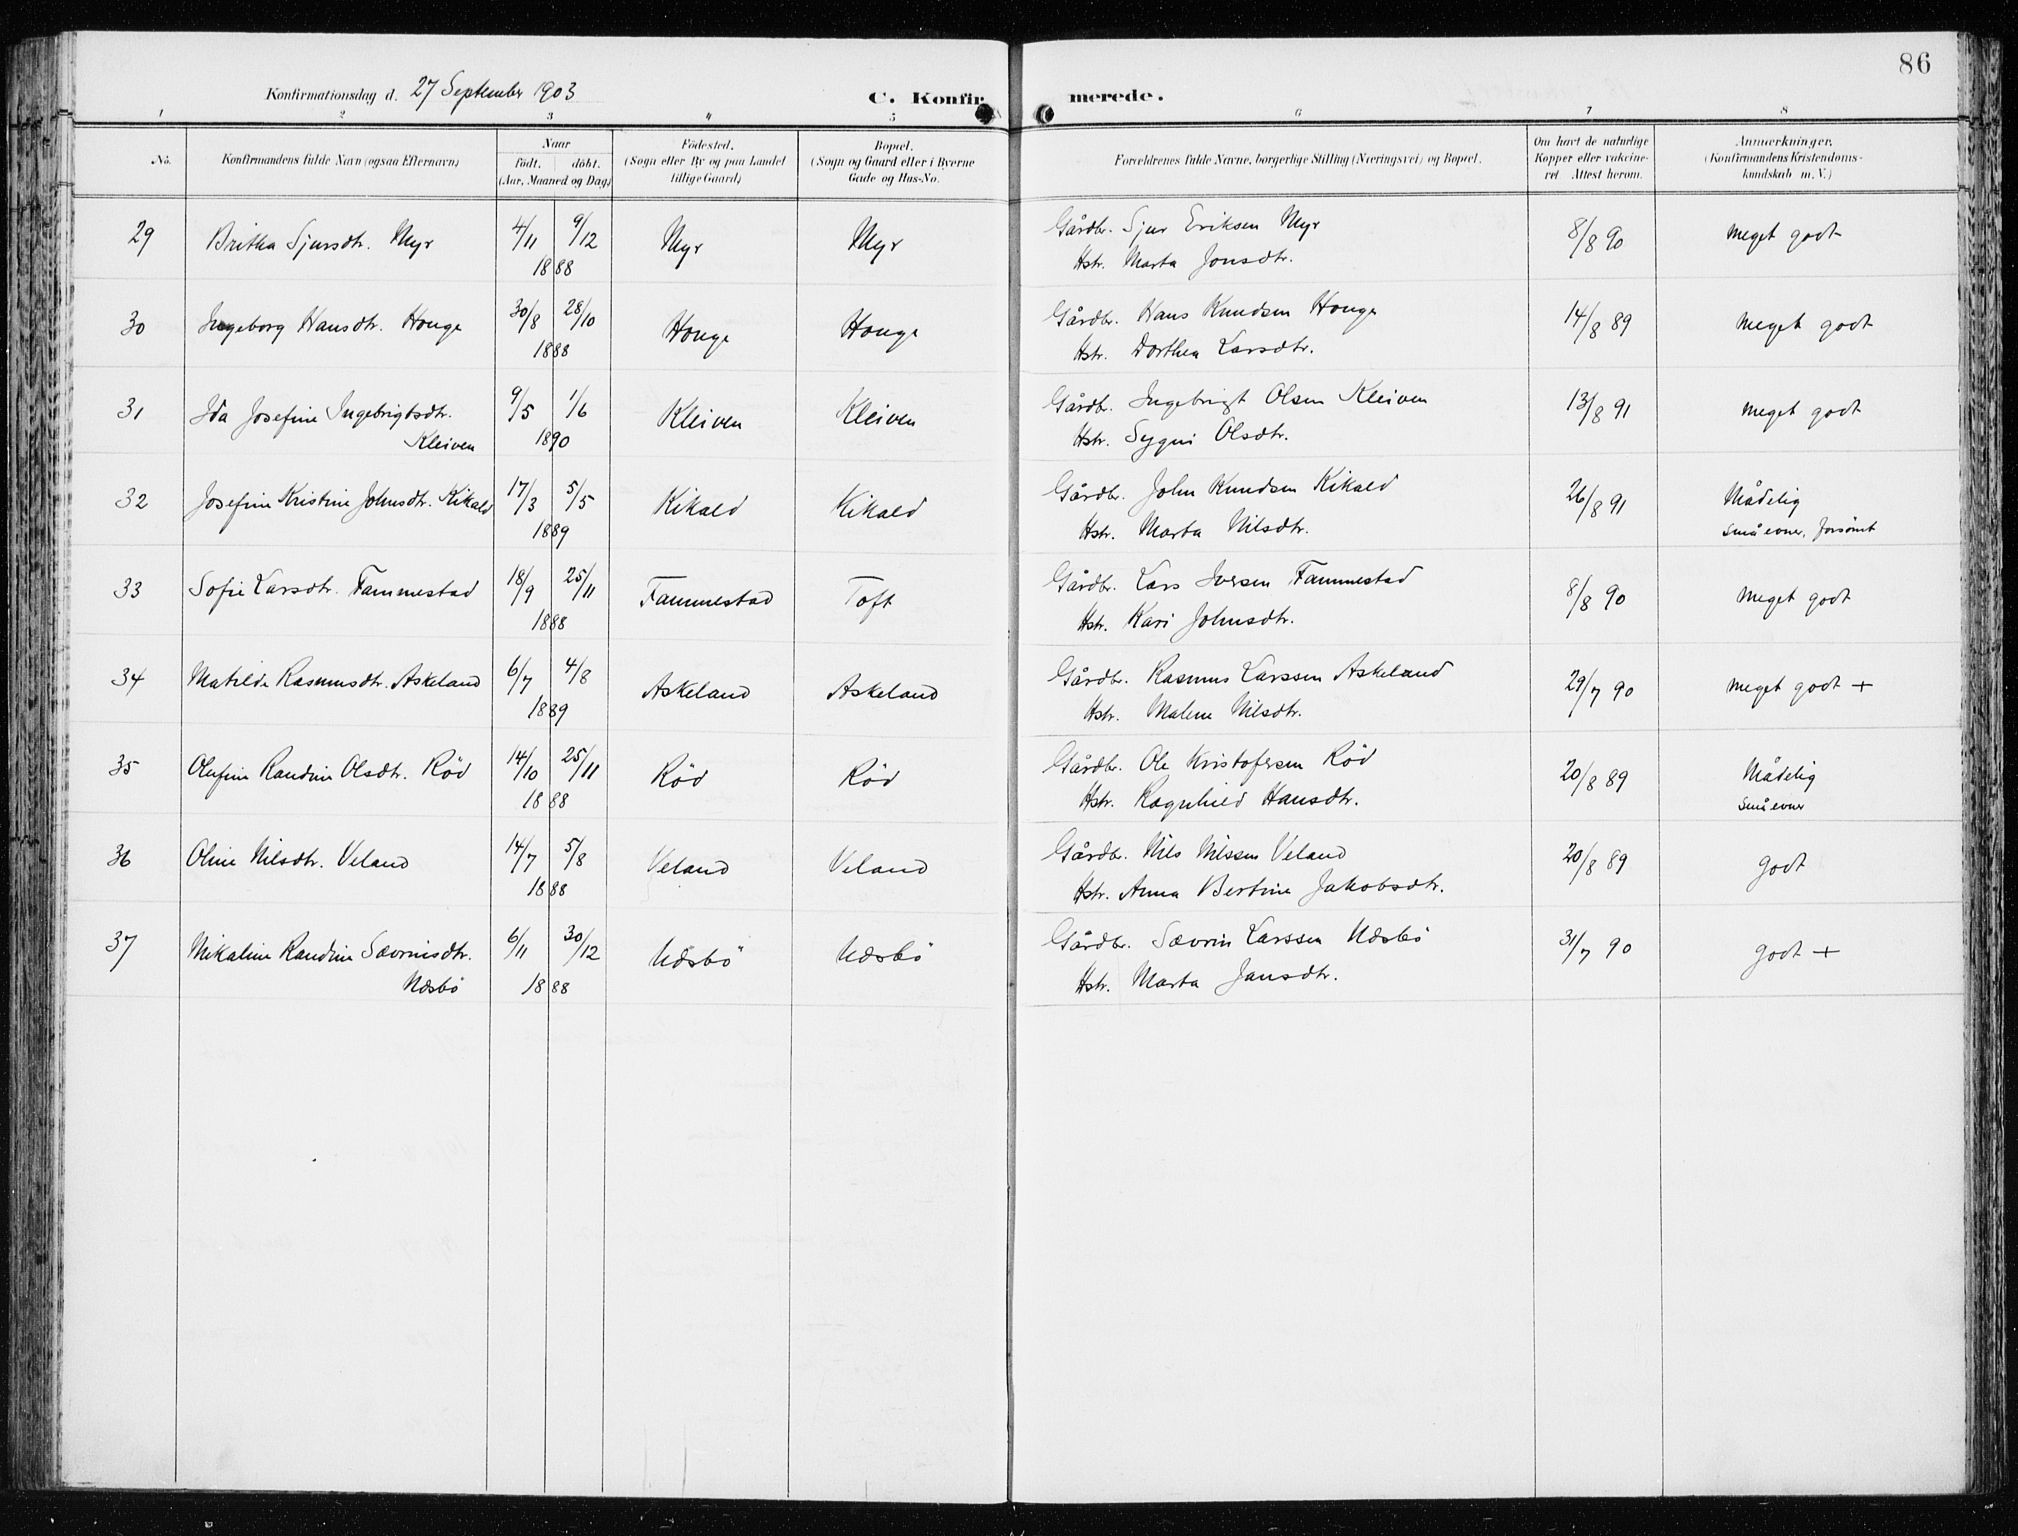 86
Konfirmationsdag d. 27 September 1903
C. Konfirmerede.
1 2 3 4 5 6 7 8
No. Konfirmandens fulde Navn (ogsaa Efternavn) Naar födt. döbt. (Aar, Maaned og Dag) Födested. (Sogn eller By og paa Landet tillige Gaard) Bopæl. (Sogn og Gaard eller i Byerne Gade og Hus-No. Forældrenes fulde Navne, borgerlige Stilling (Næringsvei) og Bopæl. Om havt de naturlige Kopper eller vakcineret Attest herom. Anmærkninger. (Konfirmandens Kristendomskundskab m. V.)
29 Britha Sjursdtr. Myr 4/11 9/12 Myr Myr Gårdbr. Sjur Eriksen Myr 8/8 90 Meget godt
1888 Hstr. Marta Jonsdtr.
30 Ingeborg Hansdtr. Houge 30/8 28/10 Houge Houge Gårdbr. Hans Knudsen Houge 14/8 89 Meget godt
1888 Hstr. Dorthea Larsdtr.
31 Ida Josefine Ingebrigtsdtr. 9/5 1/6 Kleiven Kleiven Gårdbr. Ingebrigt Olsen Kleiven 13/8 91 Meget godt
Kleiven 1890 Hstr. Sygni Olsdtr.
32 Josefine Kristine Johnsdtr. Kikald 17/3 5/5 Kikald Kikald Gårdbr. John Knudsen Kikald 26/8 91 Mådelig
1889 Hstr. Marta Nilsdtr. Små evner, forsömt
33 Sofie Larsdtr. Fammestad 18/9 25/11 Fammestad Toft Gårdbr. Lars Iversen Fammestad 8/8 90 Meget godt
1888 Hstr. Kari Johnsdtr.
34 Matilde Rasmusdtr. Askeland 6/7 4/8 Askeland Askeland Gårdbr. Rasmus Larssen Askeland 29/7 90 Meget godt +
1889 Hstr. Malene Nilsdtr.
35 Olufine Randine Olsdtr. Röd 14/10 25/11 Röd Röd Gårdbr. Ole Kristofersen Röd 20/8 89 Mådelig
1888 Hstr. Ragnhild Hansdtr. Små evner
36 Oline Nilsdtr. Veland 14/7 5/8 Veland Veland Gårdbr. Nils Nilssen Veland 20/8 89 godt
1888 Hstr. Anna Bertine Jakobsdtr.
37 Mikaline Randine Sævrinsdtr. 6/11 30/12 Næsbö Næsbö Gårdbr. Sævrin Larssen Næsbö 31/7 90 godt +
Næsbö 1888 Hstr. Marta Jansdtr.